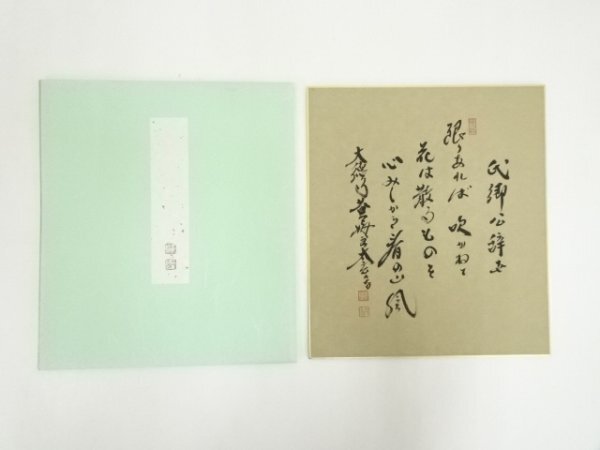 氏郷公辞世
限りあれば 吹かねと
花は散るものを
心みしかき春の山風
大徳寺黄梅太玄書